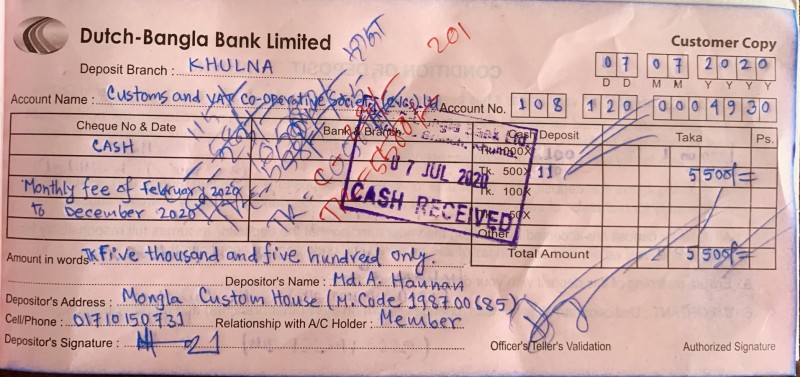 Dutch-Bangla Bank Limited
201
Customer Copy
Deposit Branch : KHULNA
07 07 2020
D D M M Y Y Y Y
Account Name : Customs and VAT co-operative Society Account No. 108 120 0004930
Cheque No & Date Bank & Branch Cash Deposit Taka Ps.
CASH
Tk. 500X 11 5500/=
07 JUL 2020
Monthly fee of february 2020 Tk. 100X
CASH RECEIVED
To December 2020 50X
Other
Amount in words Tk Five thousand and five hundred only. Total Amount 5500/=
Depositor's Name : Md. A. Hannan
Depositor's Address : Mongla Custom House (M.Code 198700685)
Cell/Phone : 01710150731 Relationship with A/C Holder : Member
Depositor's Signature : Officer's/Teller's Validation Authorized Signature